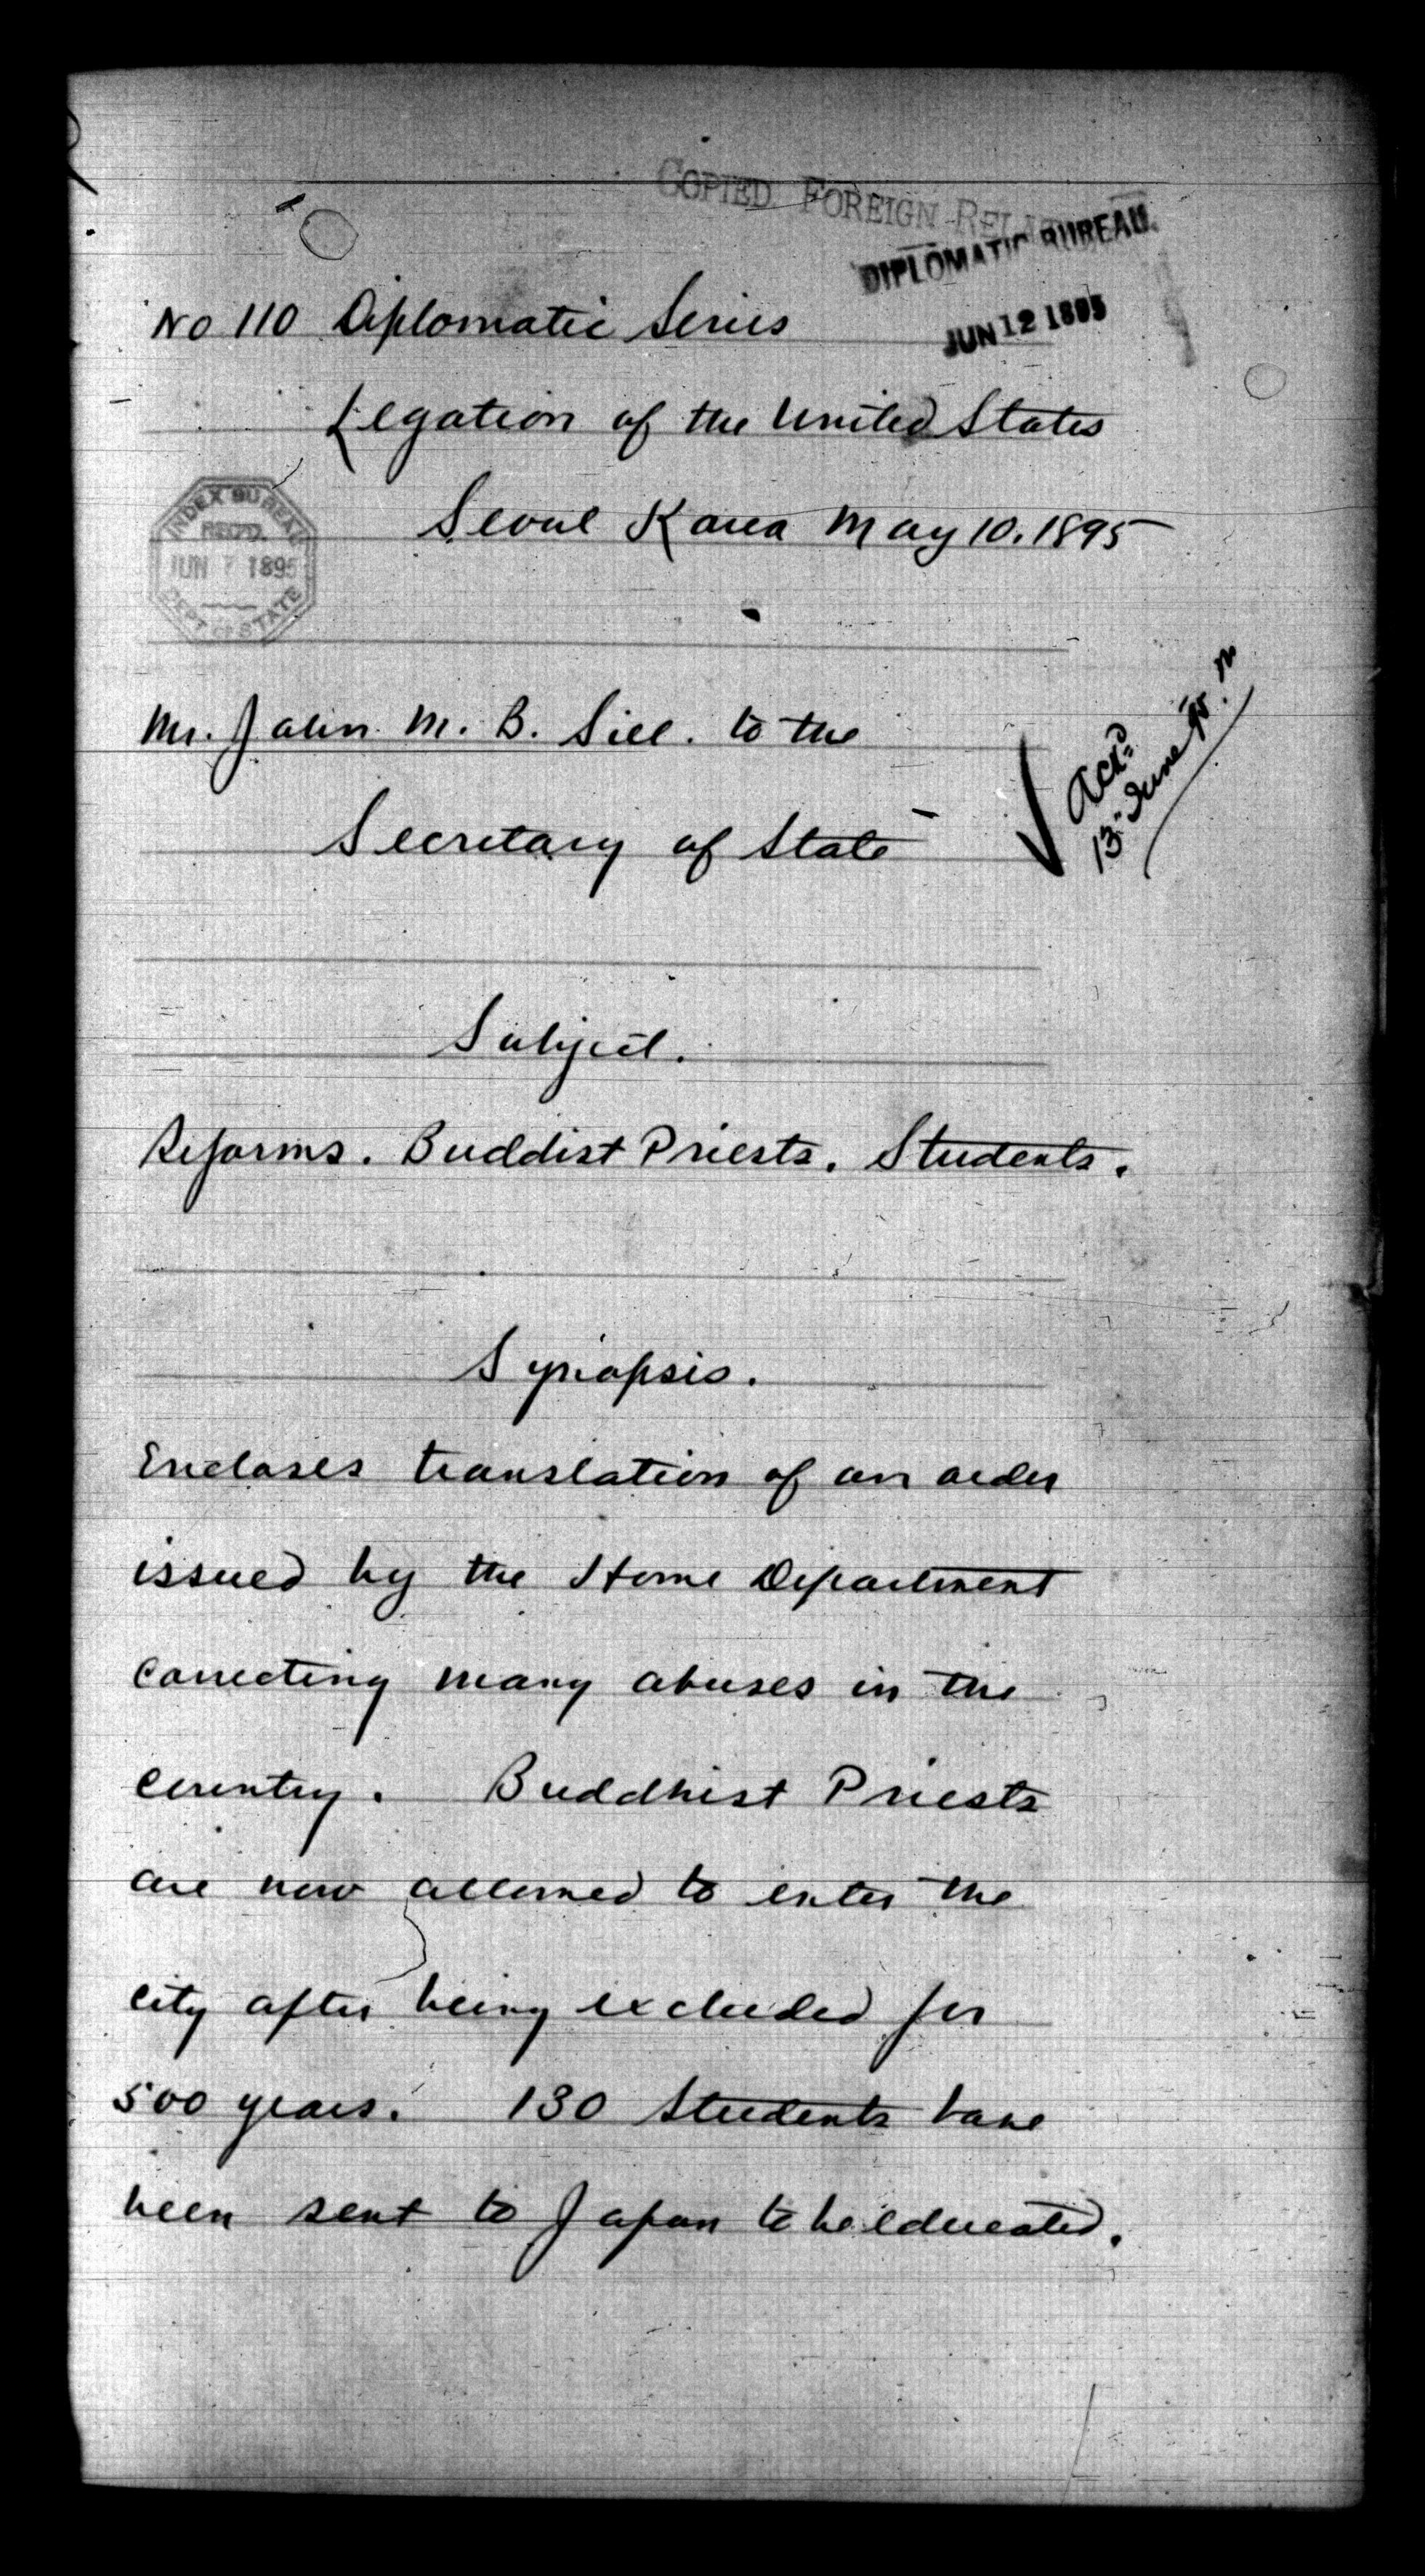 COPIED FOREIGN RELAT
DIPLOMATIC BUREAU.
JUN 12 1895
No 110 Diplomatic Series
Legation of the United States
Seoul Korea May 10. 1895
INDEX BUREAU
REC'D.
JUN 7 1895
DEPT OF STATE
Mr. John M. B. Sill. to the
Secretary of State
Ack'd
13" June 95.
Subject.
Reforms. Buddist Priests. Students.
Synopsis.
Encloses translation of an order
issued by the Home Department
correcting many abuses in the
country. Buddhist Priests
are now allowed to enter the
city after being excluded for
500 years. 130 Students have
been sent to Japan to be educated.